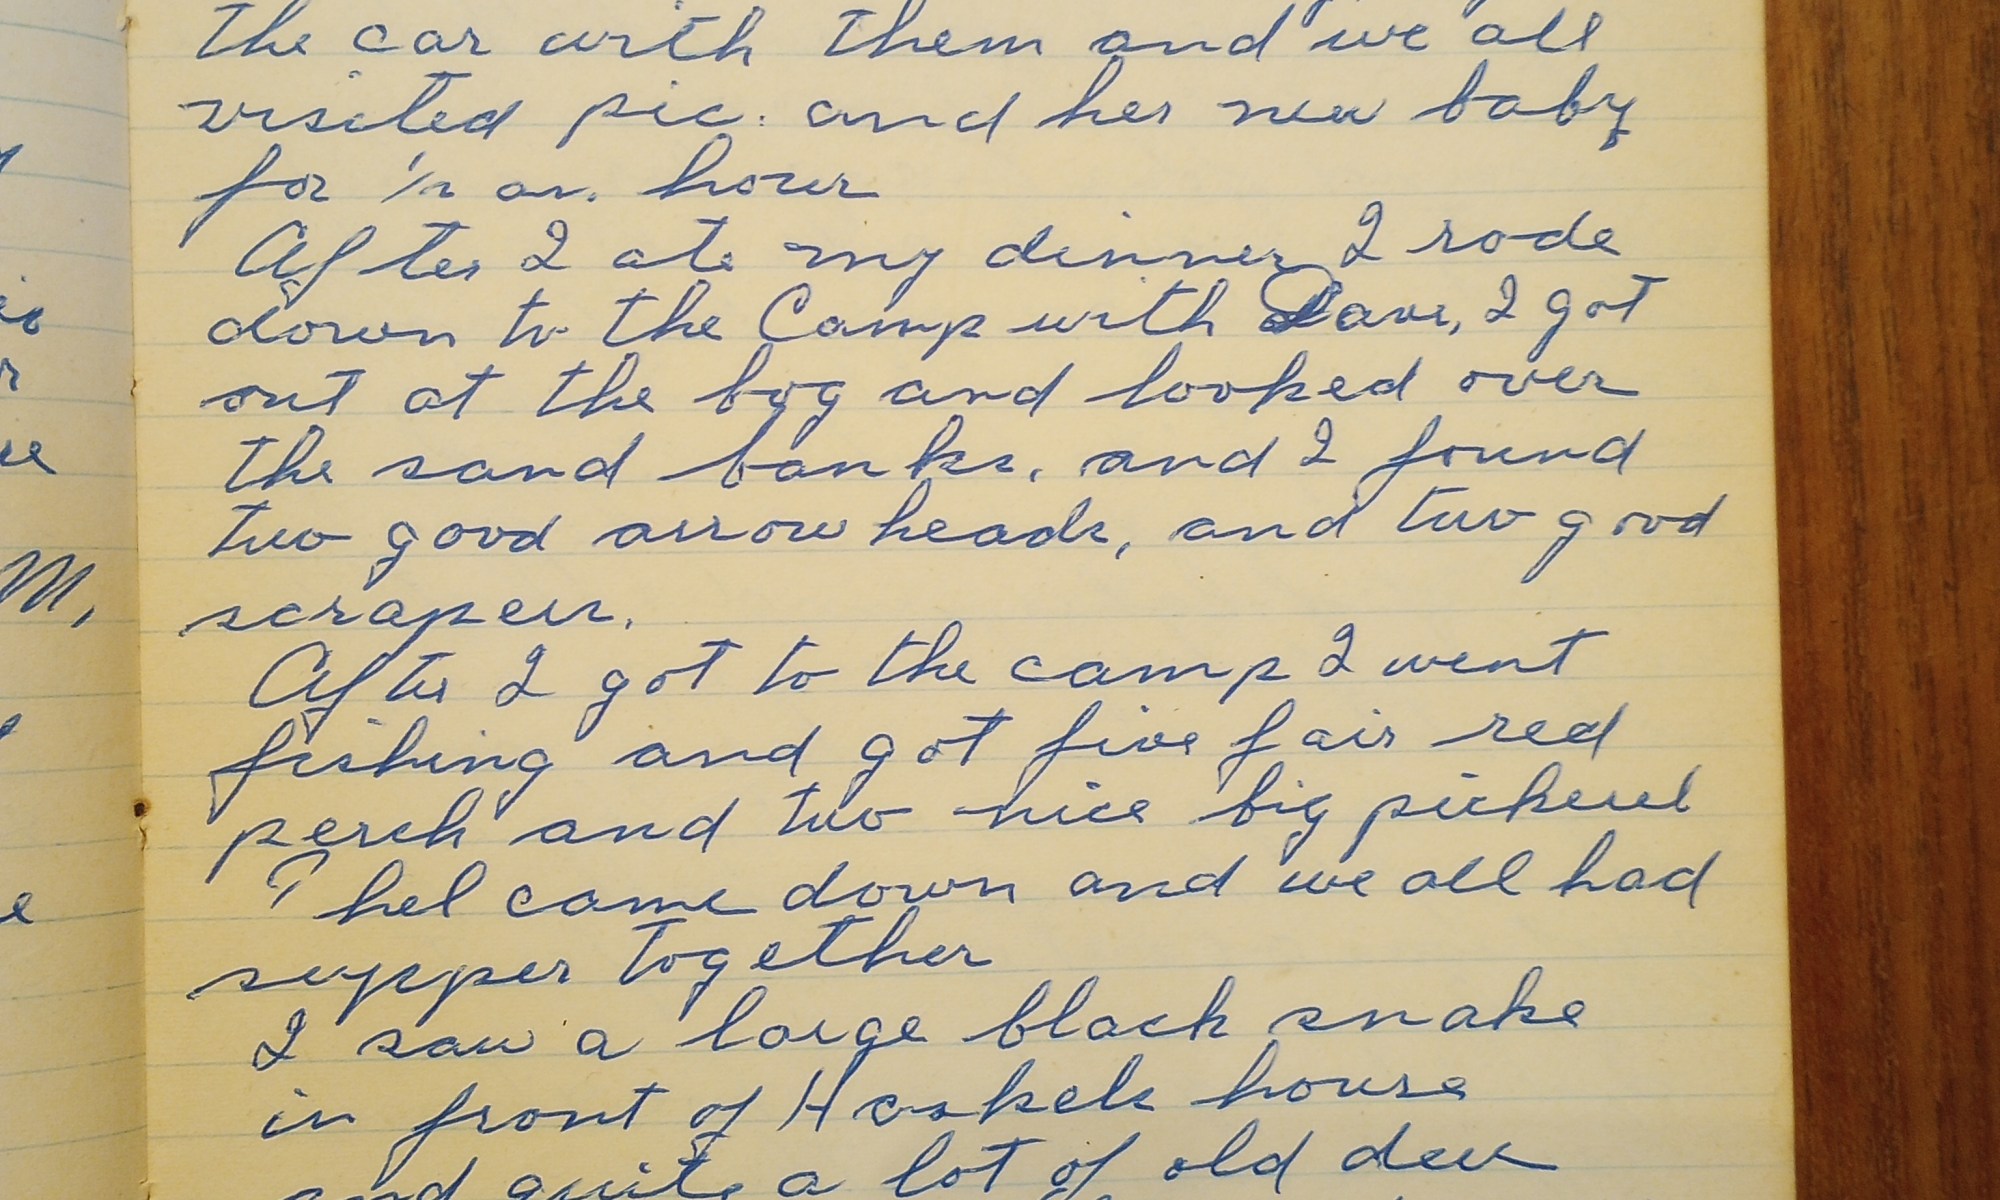 the car with them and we all
visited pic. and her new baby
for 1/2 an. hour
After I ate my dinner I rode
down to the Camp with Dave, I got
out at the bog and looked over
the sand banks, and I found
two good arrow heads, and two good
scrapers.
After I got to the camp I went
fishing and got five fair red
perch and two nice big pickerel
Thel came down and we all had
supper together
I saw a large black snake
in front of Haskels house
and quite a lot of old deer